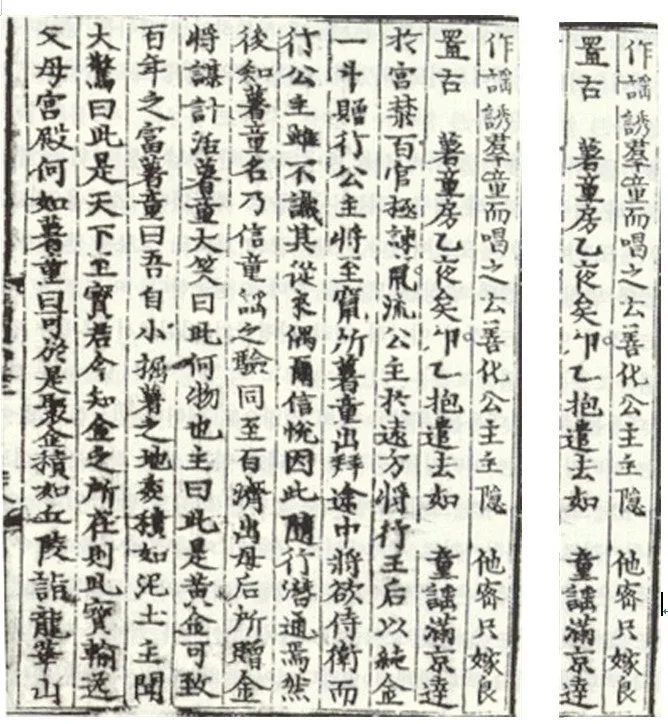 作謠誘羣童而唱之云善化公主主隱 他密只嫁良
置古 薯童房乙夜矣卯乙抱遣去如 童謠滿京達
扵宮禁百官極諫竄流公主扵遠方將行王后以純金
一斗贈行公主將至竄所薯童出拜途中將欲侍衛而
行公主雖不識其從來偶爾信悅因此隨行潜通焉然
後知薯童名乃信童謠之驗同至百濟出母后所贈金
將謀計活薯童大笑曰此何物也主曰此是黃金可致
百年之富薯童曰吾自小掘薯之地委積如泥土 主聞
大驚曰此是天下至寶君今知金之所在則此寶輸送
父母宮殿何如薯童曰可於是聚金積如丘陵詣龍華山
作謠誘羣童而唱之云善化公主主隱 他密只嫁良
置古 薯童房乙夜矣卯乙抱遣去如 童謠滿京達